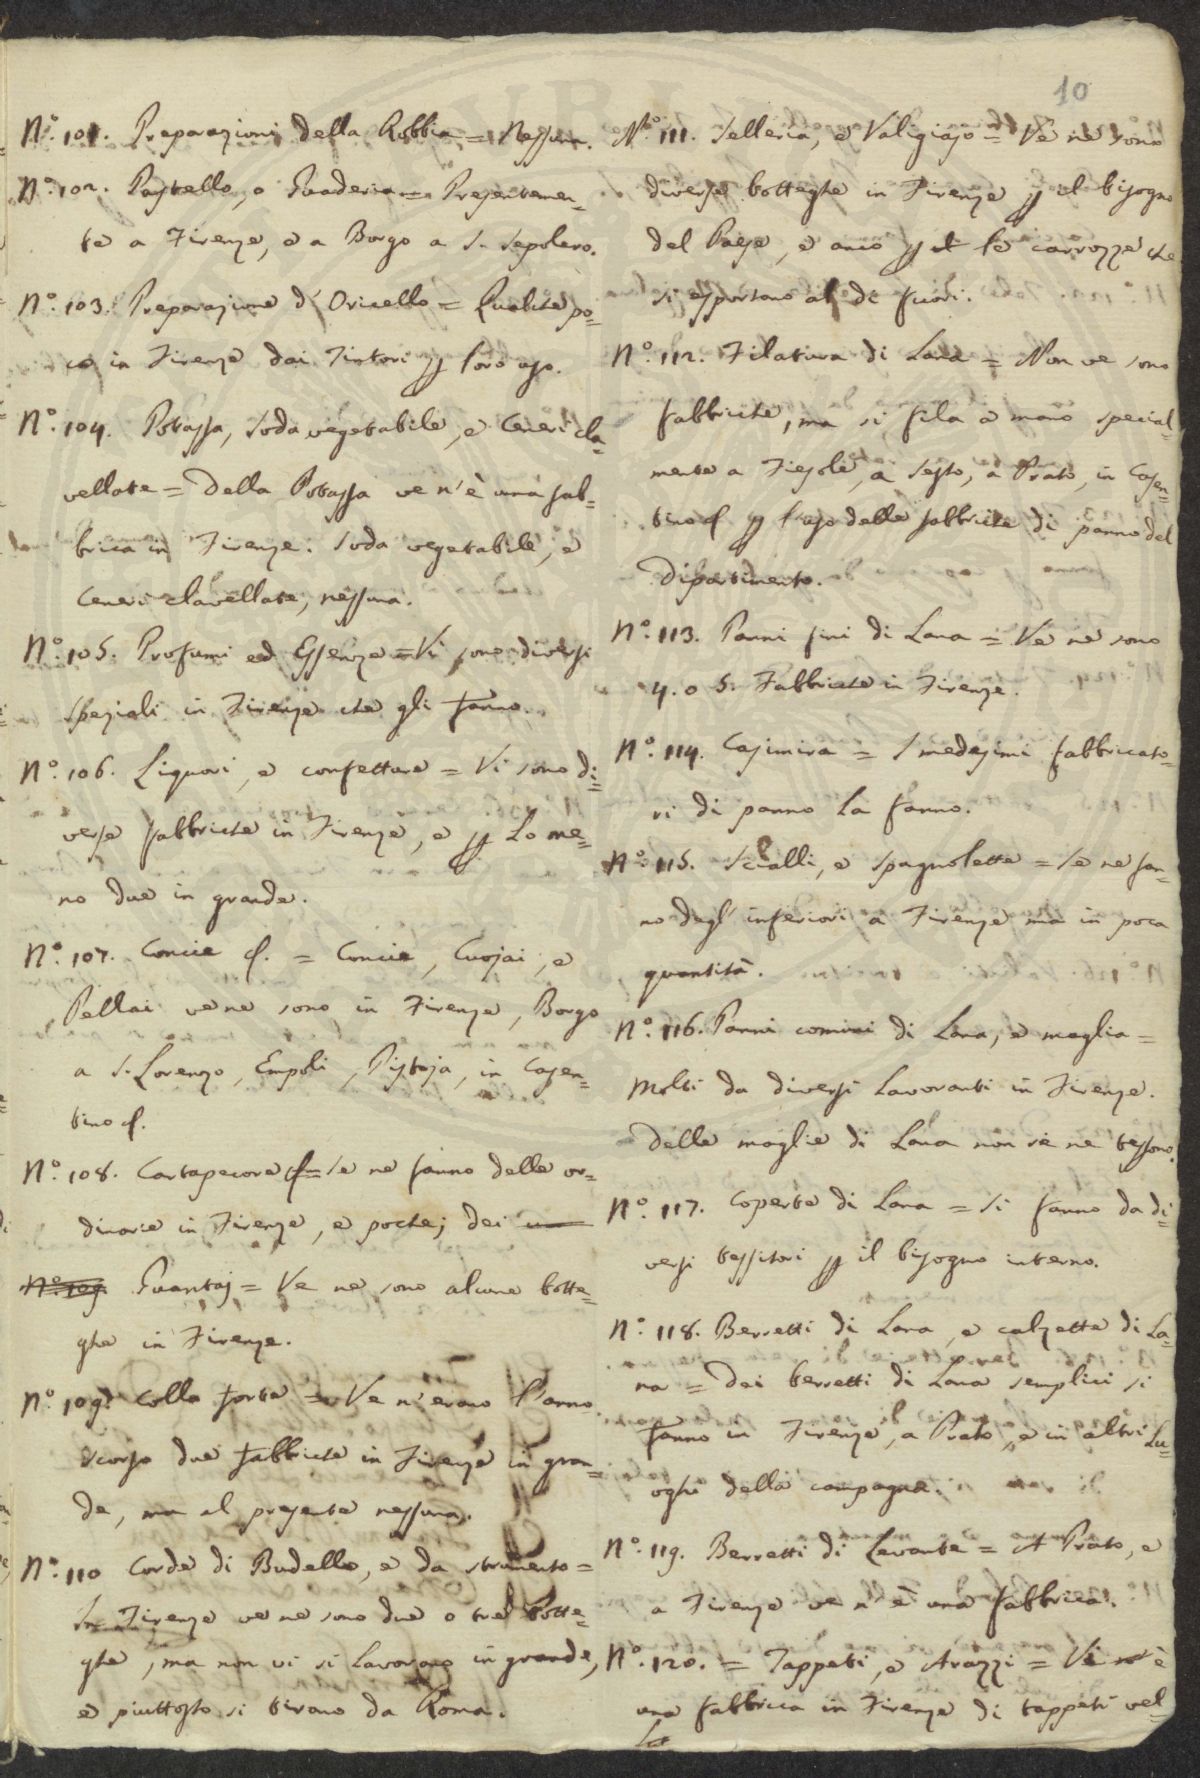 10
N.º 101. Preparazioni della Robbia = Nessuna.
N.º 102. Pastello, o Guaderia = Presentemen=
te a Firenze, e a Borgo a S. Sepolcro.
N.º 103. Preparazione d'Oricello = Qualche po=
co in Firenze dai Tintori p loro uso.
N.º 104. Potassa, Soda vegetabile, e Ceneri cla=
vellate = Della Potassa ve n'è una fab=
brica in Firenze. Soda vegetabile, e
Ceneri clavellate, nessuna.
N.º 105. Profumi ed Essenze = Vi sono diversi
speziali in Firenze che gli fanno.
N.º 106. Liquori, e confetture = Vi sono di=
verse fabbriche in Firenze, e p lo me=
no due in grande.
N.º 107. Concie &. = Concie, Cuojai, e
Pellai ve ne sono in Firenze, Borgo
a S. Lorenzo, Empoli, Pistoja, in Casen=
tino &.
N.º 108. Cartapecore & = Se ne fanno delle or=
dinarie in Firenze, e poche; dei
N.º 109. Guantaj = Ve ne sono alcune botte=
ghe in Firenze.
N.º 109. Colla forte = Ve n'erano l'anno
scorso due fabbriche in Firenze in gran=
de, ma al presente nessuna.
N.º 110 Corde di Budello, e da strumento =
In Firenze ve ne sono due o tre botte=
ghe, ma non vi si lavorano in grande,
e piuttosto si tirano da Roma.
N.º 111. Selleria, e Valigiajo = Ve ne sono
diverse botteghe in Firenze p il bisogno
del Paese, e anco p le carrozze che
si esportano al di fuori.
N.º 112. Filatura di Lana = Non ve sono
fabbriche, ma si fila a mano special=
mente a Fiesole, a Sesto, a Prato, in Casen=
tino & p l'uso delle fabbriche di panno del
Dipartimento.
N.º 113. Panni fini di Lana = Ve ne sono
4. o 5. Fabbriche in Firenze.
N.º 114. Casimira = I medesimi fabbricato=
ri di panno la fanno.
N.º 115. Scialli, e spagnolette = Se ne fan=
no degl'inferiori a Firenze ma in poca
quantità.
N.º 116. Panni comuni di Lana, e maglia =
Molti da diversi Lavoranti in Firenze.
Delle maglie di Lana non se ne tessono.
N.º 117. Coperte di Lana = Si fanno da di=
versi tessitori p il bisogno interno.
N.º 118. Berretti di Lana, e calzette di La=
na = Dei berretti di Lana semplici si
fanno in Firenze, a Prato, e in altri Lu=
oghi della campagna.
N.º 119. Berretti di Levante = A Prato, e
a Firenze ve n'è una fabbrica.
N.º 120. = Tappeti, e Arazzi = Vi è
una fabbrica in Firenze di tappeti vel=